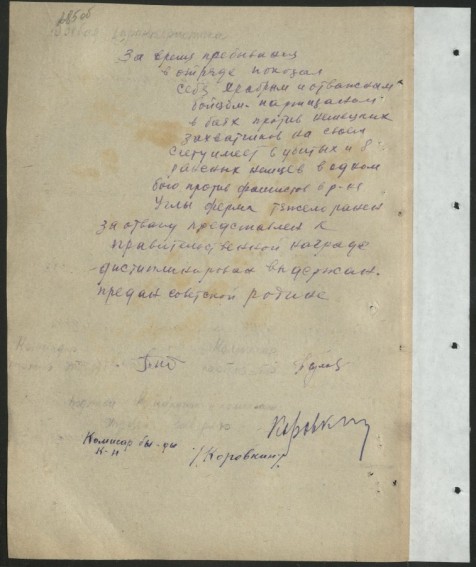 285об
За время пребывания
в отряде показал
себя храбрым и отважным
бойцом-партизаном
в боях против немецких
захватчиков на своем
счету имеет 6 убитых и 8
раненых немцев в одном
бою против фашистов в р-не
Углы ферма тяжело ранен
за отвагу представлен к
правительственной награде
дисциплинирован выдержан.
предан советской родине
Коровкин
Комисар
/Коровкин/